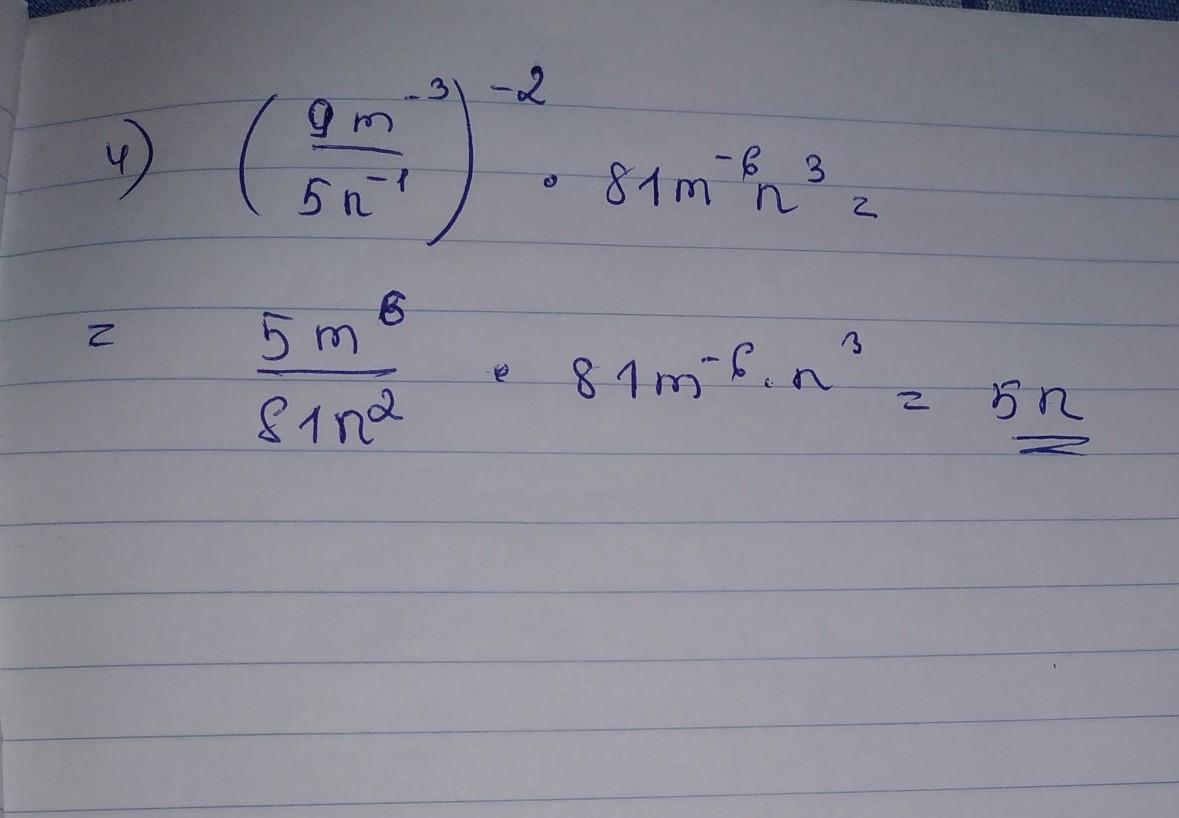 4) (9m⁻³/5n⁻¹)⁻² · 81m⁻⁶n³ =
= 5m⁶/81n² · 81m⁻⁶·n³ = 5n